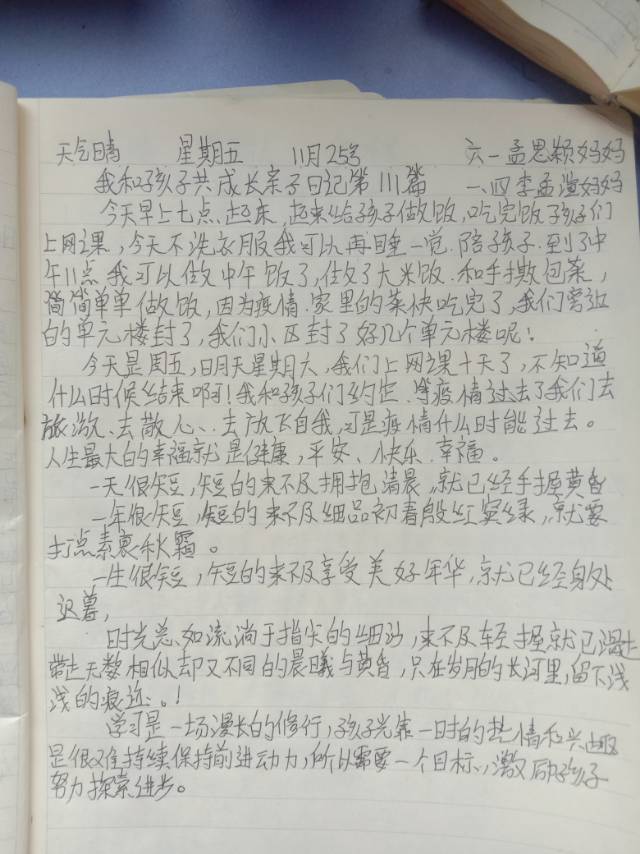 天气晴 星期五 11月25号 六一孟思颖妈妈
我和孩子共成长亲子日记第111篇 一、四李孟渲妈妈
今天早上七点起床,起来给孩子做饭,吃完饭孩子们
上网课,今天不洗衣服我可以再睡一觉.陪孩子.到了中
午11点我可以做中午饭了,做了大米饭.和手撕包菜,
简简单单做饭,因为疫情.家里的菜快吃完了,我们旁边
的单元楼封了,我们小区封了好几个单元楼呢!
今天是周五,明天星期六,我们上网课十天了,不知道
什么时候结束啊!我和孩子们约定.等疫情过去了我们去
旅游、去散心、去放飞自我,可是疫情什么时能过去。
人生最大的幸福就是健康,平安、快乐.幸福。
一天很短,短的来不及拥抱清晨,就已经手握黄昏
一年很短,短的来不及细品初春殷红窦绿,就要
打点素裹秋霜。
一生很短,短的来不及享受美好年华,就已经身处
迟暮,
时光总如流淌于指尖的细沙,来不及轻握就已
带走无数相似却又不同的晨曦与黄昏,只在岁月的长河里,留下浅
浅的痕迹。!
学习是一场漫长的修行,孩子光靠一时的热情和兴趣
是很难持续保持前进动力,所以需要一个目标,激励孩子
努力探索进步。